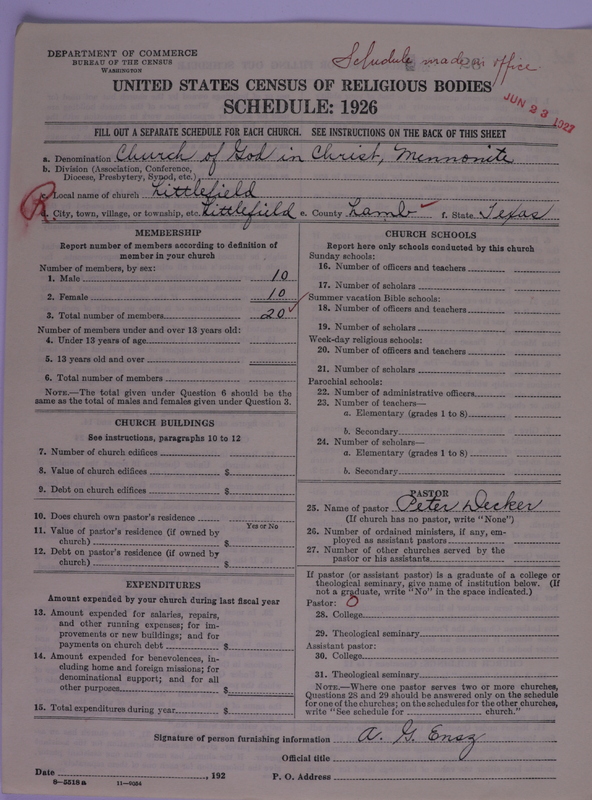 DEPARTMENT OF COMMERCE
BUREAU OF THE CENSUS
WASHINGTON
Schedule made in office
UNITED STATES CENSUS OF RELIGIOUS BODIES
SCHEDULE: 1926
JUN 23 1927
FILL OUT A SEPARATE SCHEDULE FOR EACH CHURCH. SEE INSTRUCTIONS ON THE BACK OF THIS SHEET
a. Denomination Church of God in Christ, Mennonite
b. Division (Association, Conference,
Diocese, Presbytery, Synod, etc.)
c. Local name of church Littlefield
d. City, town, village, or township, etc. Littlefield e. County Lamb f. State Texas
MEMBERSHIP
Report number of members according to definition of
member in your church
Number of members, by sex:
1. Male 10
2. Female 10
3. Total number of members 20
Number of members under and over 13 years old:
4. Under 13 years of age
5. 13 years old and over
6. Total number of members
NOTE.—The total given under Question 6 should be the
same as the total of males and females given under Question 3.
CHURCH BUILDINGS
See instructions, paragraphs 10 to 12
7. Number of church edifices
8. Value of church edifices $
9. Debt on church edifices $
10. Does church own pastor's residence
Yes or No
11. Value of pastor's residence (if owned by
church) $
12. Debt on pastor's residence (if owned by
church) $
EXPENDITURES
Amount expended by your church during last fiscal year
13. Amount expended for salaries, repairs,
and other running expenses; for im-
provements or new buildings; and for
payments on church debt $
14. Amount expended for benevolences, in-
cluding home and foreign missions; for
denominational support; and for all
other purposes $
15. Total expenditures during year $
CHURCH SCHOOLS
Report here only schools conducted by this church
Sunday schools:
16. Number of officers and teachers
17. Number of scholars
Summer vacation Bible schools:
18. Number of officers and teachers
19. Number of scholars
Week-day religious schools:
20. Number of officers and teachers
21. Number of scholars
Parochial schools:
22. Number of administrative officers
23. Number of teachers—
a. Elementary (grades 1 to 8)
b. Secondary
24. Number of scholars—
a. Elementary (grades 1 to 8)
b. Secondary
PASTOR
25. Name of pastor Peter Decker
(If church has no pastor, write "None")
26. Number of ordained ministers, if any, em-
ployed as assistant pastors
27. Number of other churches served by the
pastor or his assistants
If pastor (or assistant pastor) is a graduate of a college or
theological seminary, give name of institution below. (If
not a graduate, write "No" in the space indicated.)
Pastor: 0
28. College
29. Theological seminary
Assistant pastor:
30. College
31. Theological seminary
NOTE.—Where one pastor serves two or more churches,
Questions 28 and 29 should be answered only on the schedule
for one of the churches; on the schedules for the other churches,
write "See schedule for church."
Signature of person furnishing information A. G. Ensz
Official title
Date , 192 P. O. Address
8—5518a 11—9554